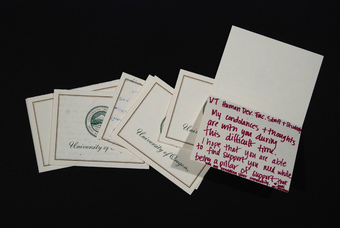 University of
University of Oregon
VT Human Dev. Fac. Staff + Students
My condolences + thoughts
are with you during
this difficult time.
I hope that you are able
to find support you need while
being a pillar of support